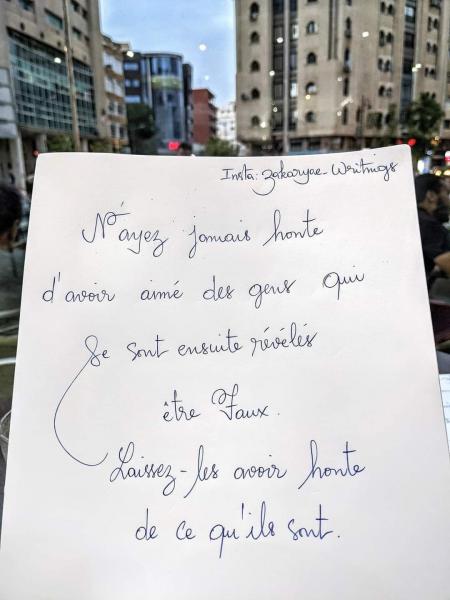 Insta: zakaryae-Writings
N'ayez jamais honte
d'avoir aimé des gens qui
se sont ensuite révélés
être Faux.
Laissez-les avoir honte
de ce qu'ils sont.